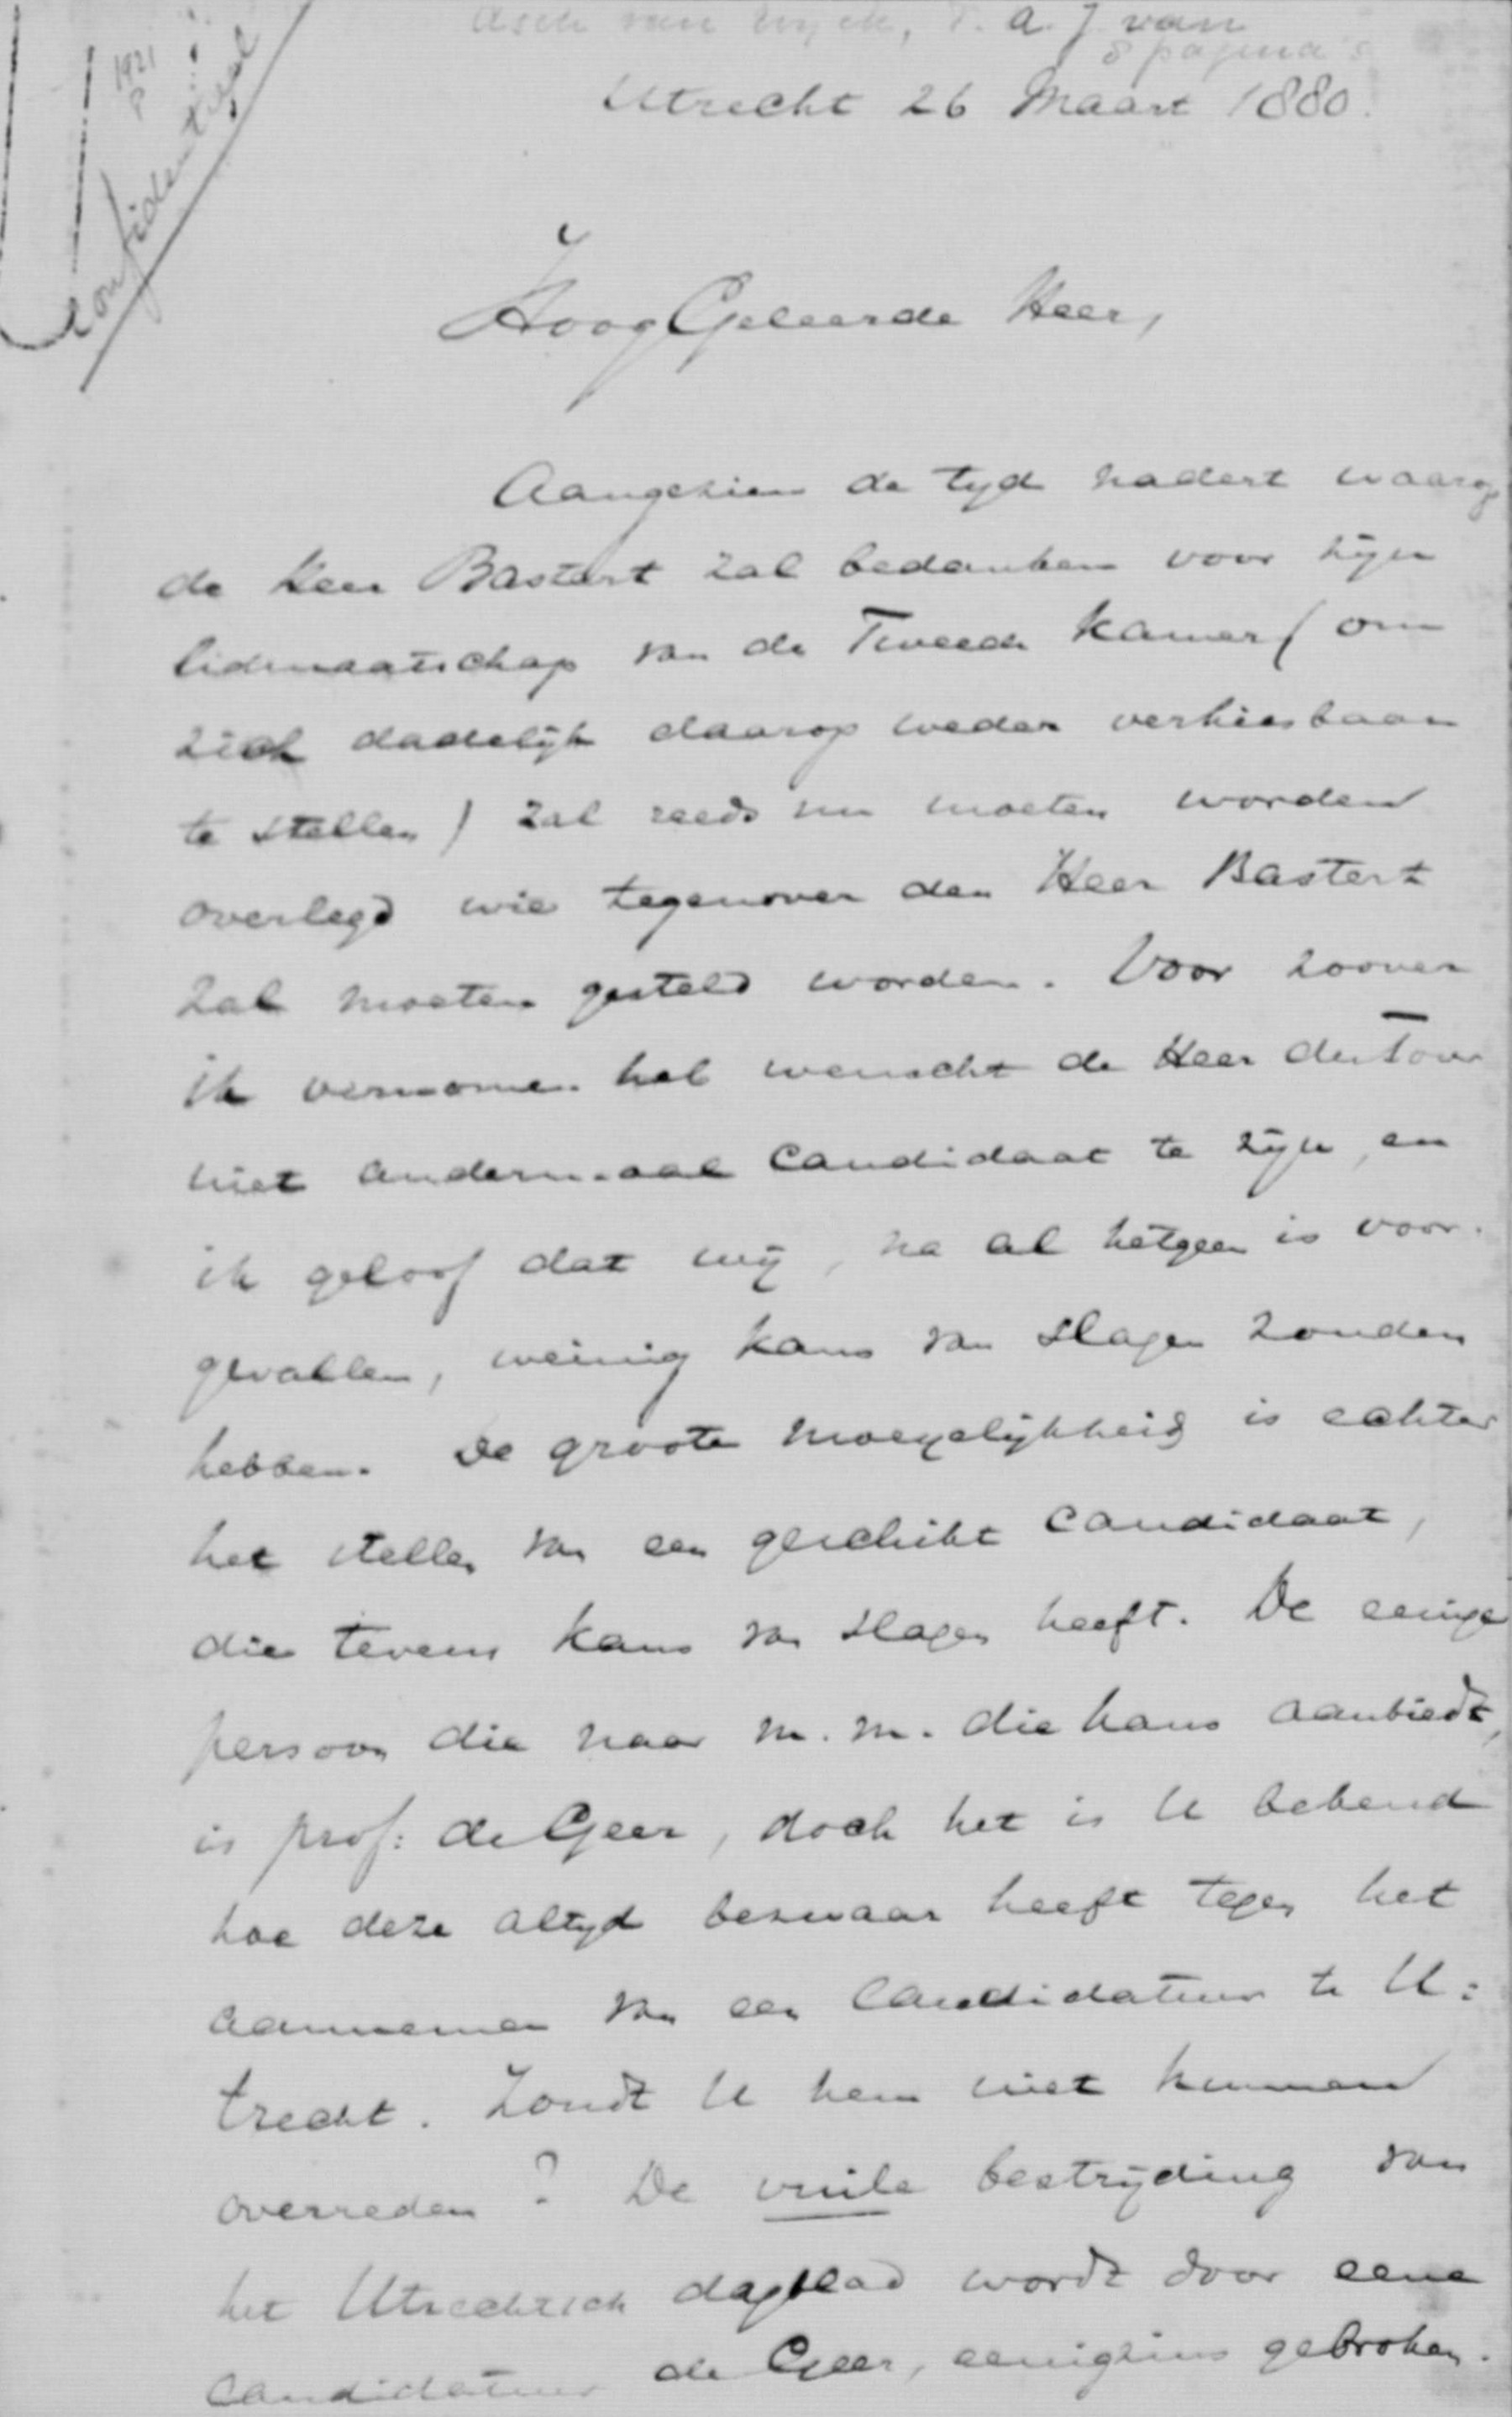 Asch van Wyck, T. A. J van
8 pagina's
1921
P
Confidentieel
Utrecht 26 Maart 1880.
HoogGeleerde Heer,
Aangezien de tyd nadert waarop
de Heer Bastert zal bedanken voor zijn
lidmaatschap van de Tweede Kamer (om
zich dadelijk daarop weder verkiesbaar
te stellen) zal reeds nu moeten worden
overlegd wie tegenover den Heer Bastert
zal moeten gesteld worden. Voor zoover
ik vernomen heb wenscht de Heer du Tour
niet andermaal Candidaat te zijn, en
ik geloof dat wij, na al hetgeen is voor-
gevallen, weinig kans van slagen zouden
hebben. De groote moeyelijkheid is echter
het stellen van een geschikt Candidaat,
die tevens kans van slagen heeft. De eenige
persoon die naar m.m. die kans aanbiedt,
is prof: de Geer, doch het is U bekend
hoe deze altyd bezwaar heeft tegen het
aannemen van een Candidatuur te U=
trecht. Zoudt U hem niet kunnen
overreden? De vuile bestrijding van
het Utrechtsch dagblad wordt door eene
Candidatuur de Geer, eenigzins gebroken.